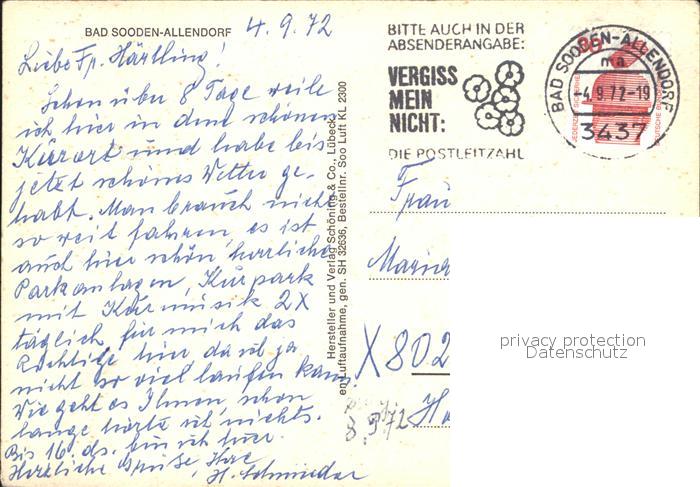 BAD SOODEN-ALLENDORF
4.9.72
Liebe Fr. Härtling!
Schon über 8 Tage weile
ich hier in dem schönen
Kurort und habe bis
jetzt schönes Wetter ge-
habt. Man brauch nicht
so weit fahren, es ist
auch hier schön, herrliche
Parkanlagen, Kurpark
mit Kurmusik 2X
täglich, für mich das
Richtige hier, da ich ja
nicht so viel laufen kann.
Wie geht es Ihnen, schon
lange hörte ich nichts.
Bis 16. ds. bin ich hier.
Herzliche Grüße, Ihre
H. Schmieder
Hersteller und Verlag Schöning & Co., Lübeck
en Luftaufnahme, gen. SH 32636, Bestellnr. Soo Luft KL 2300
BITTE AUCH IN DER
ABSENDERANGABE:
VERGISS
MEIN
NICHT:
DIE POSTLEITZAHL
BAD SOODEN-ALLENDORF
ma
-4.9.72-19
3437
Frau
Maria
X 802
8.9.72
privacy protection
Datenschutz